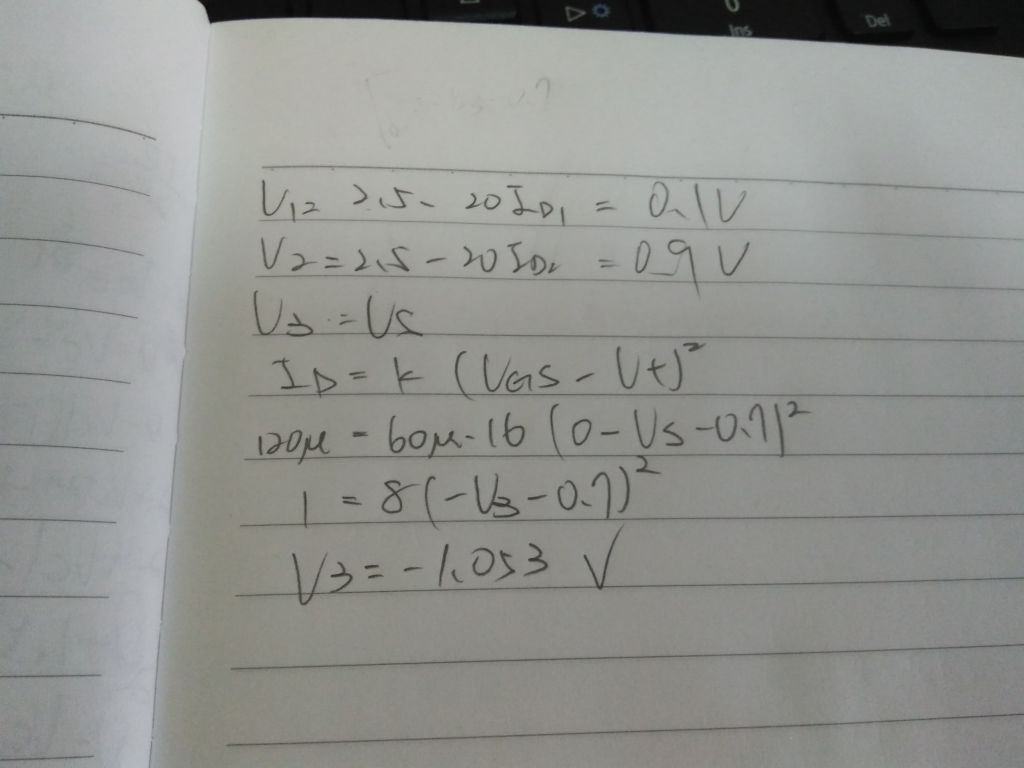 Ins
Del
V1= 2.5 - 20ID1 = 0.1V
V2 = 2.5 - 20ID2 = 0.9 V
V3 = VS
ID = k (VGS - Vt)²
120μ = 60μ·16 (0 - VS - 0.7)²
1 = 8(-V3 - 0.7)²
V3 = -1.053 V